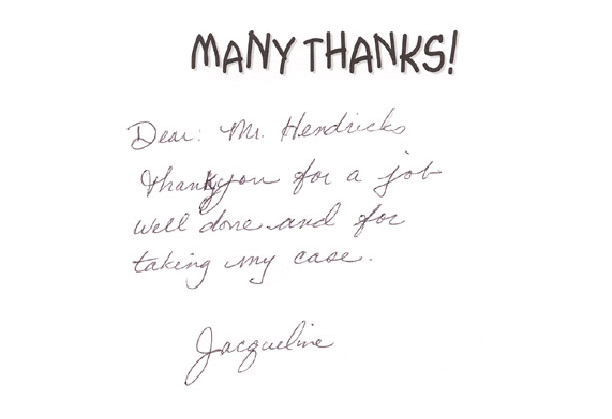 MANY THANKS!
Dear: Mr. Hendricks
Thankyou for a job
well done and for
taking my case.
Jacqueline